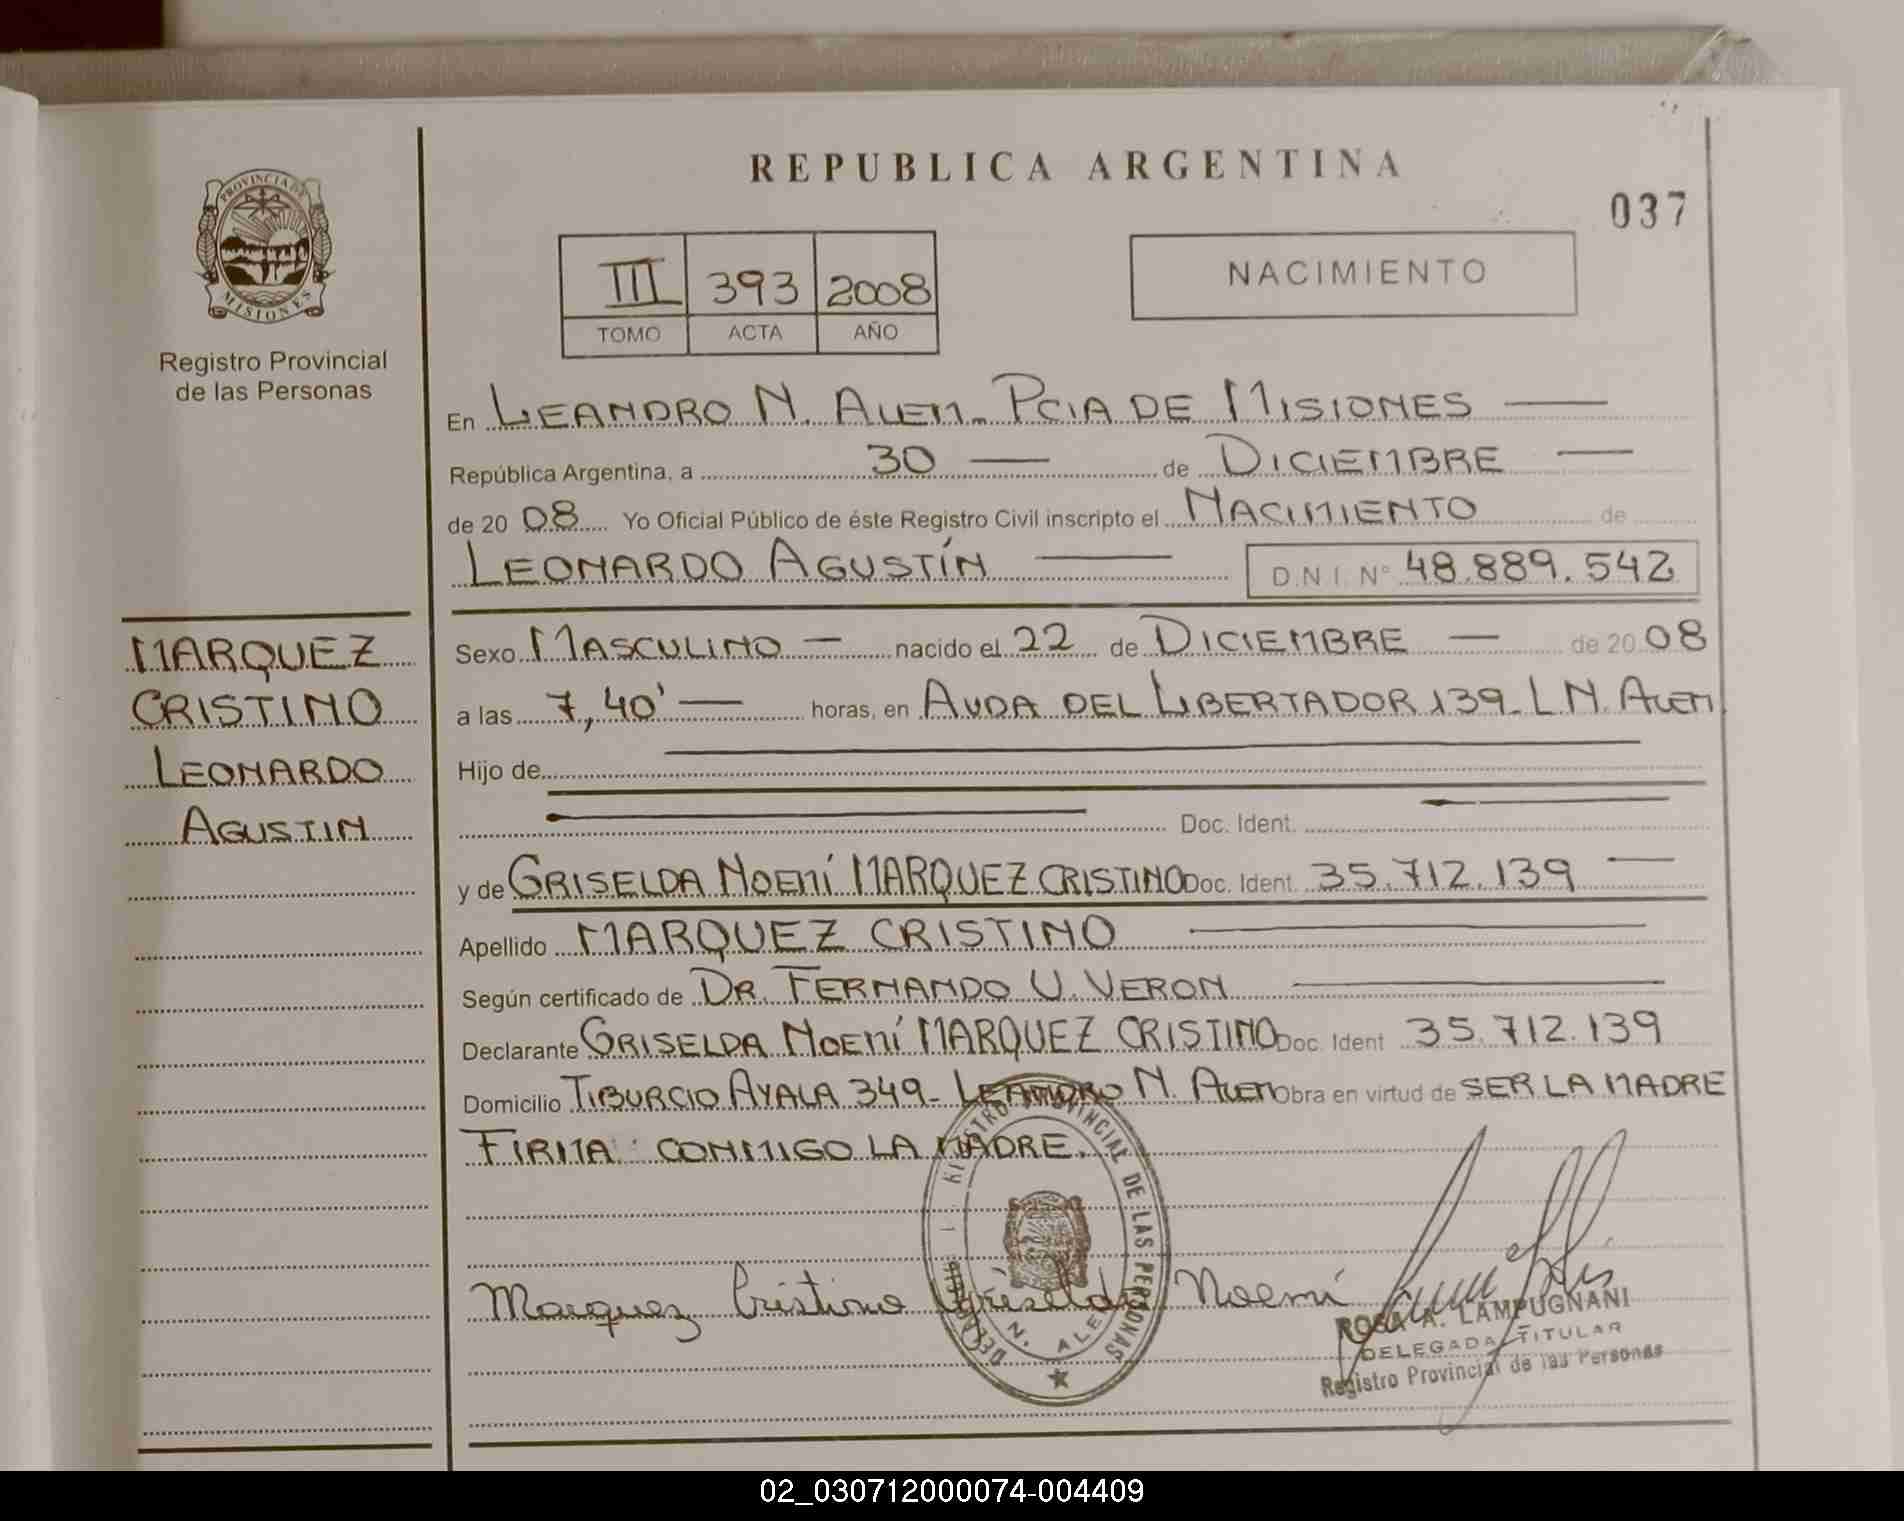 REPUBLICA ARGENTINA
037
PROVINCIA DE
MISIONES
Registro Provincial
de las Personas
III 393 2008
TOMO ACTA AÑO
NACIMIENTO
En LEANDRO N. ALEM - PCIA DE MISIONES
República Argentina, a 30 de DICIEMBRE
de 20 08 Yo Oficial Público de éste Registro Civil inscripto el NACIMIENTO de
LEONARDO AGUSTÍN D.N.I. N° 48.889.542
MARQUEZ
CRISTINO
LEONARDO
AGUSTIN
Sexo MASCULINO - nacido el 22 de DICIEMBRE - de 20 08
a las 7,40' horas, en AVDA DEL LIBERTADOR 139 - L N. ALEM
Hijo de
Doc. Ident.
y de GRISELDA NOEMÍ MARQUEZ CRISTINO Doc. Ident. 35.712.139
Apellido MARQUEZ CRISTINO
Según certificado de DR. FERNANDO U. VERON
Declarante GRISELDA NOEMÍ MARQUEZ CRISTINO Doc. Ident 35.712.139
Domicilio TIBURCIO AYALA 349 - LEANDRO N. ALEM Obra en virtud de SER LA MADRE
FIRMA: CONMIGO LA MADRE.
REGISTRO PROVINCIAL DE LAS PERSONAS
N. ALEM
Marquez Cristino Griselda Noemí
ROSA A. LAMPUGNANI
DELEGADA TITULAR
Registro Provincial de las Personas
02_030712000074-004409